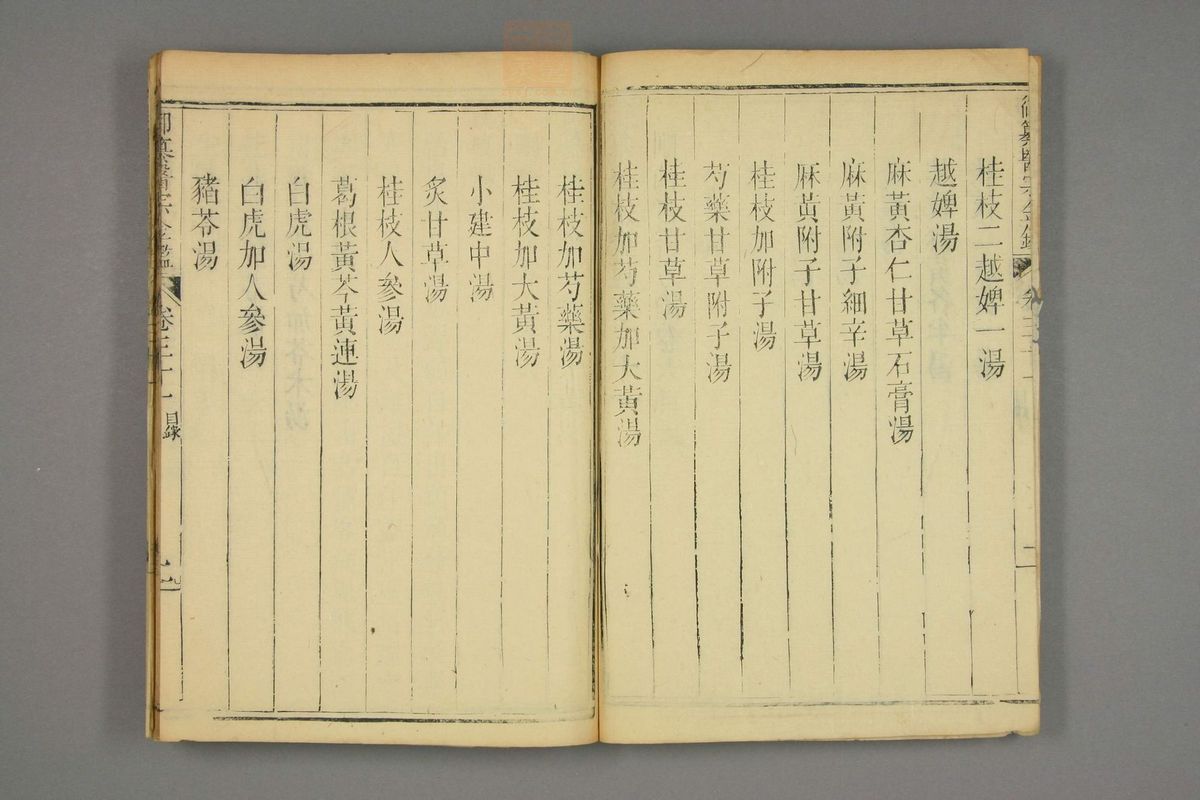 御纂醫宗金鑑
卷三十一
桂枝二越婢一湯
越婢湯
麻黃杏仁甘草石膏湯
麻黃附子細辛湯
麻黃附子甘草湯
桂枝加附子湯
芍藥甘草附子湯
桂枝甘草湯
桂枝加芍藥加大黃湯
桂枝加芍藥湯
桂枝加大黃湯
小建中湯
炙甘草湯
桂枝人參湯
葛根黃芩黃連湯
白虎湯
白虎加人參湯
豬苓湯
御纂醫宗金鑑
卷三十一
目錄